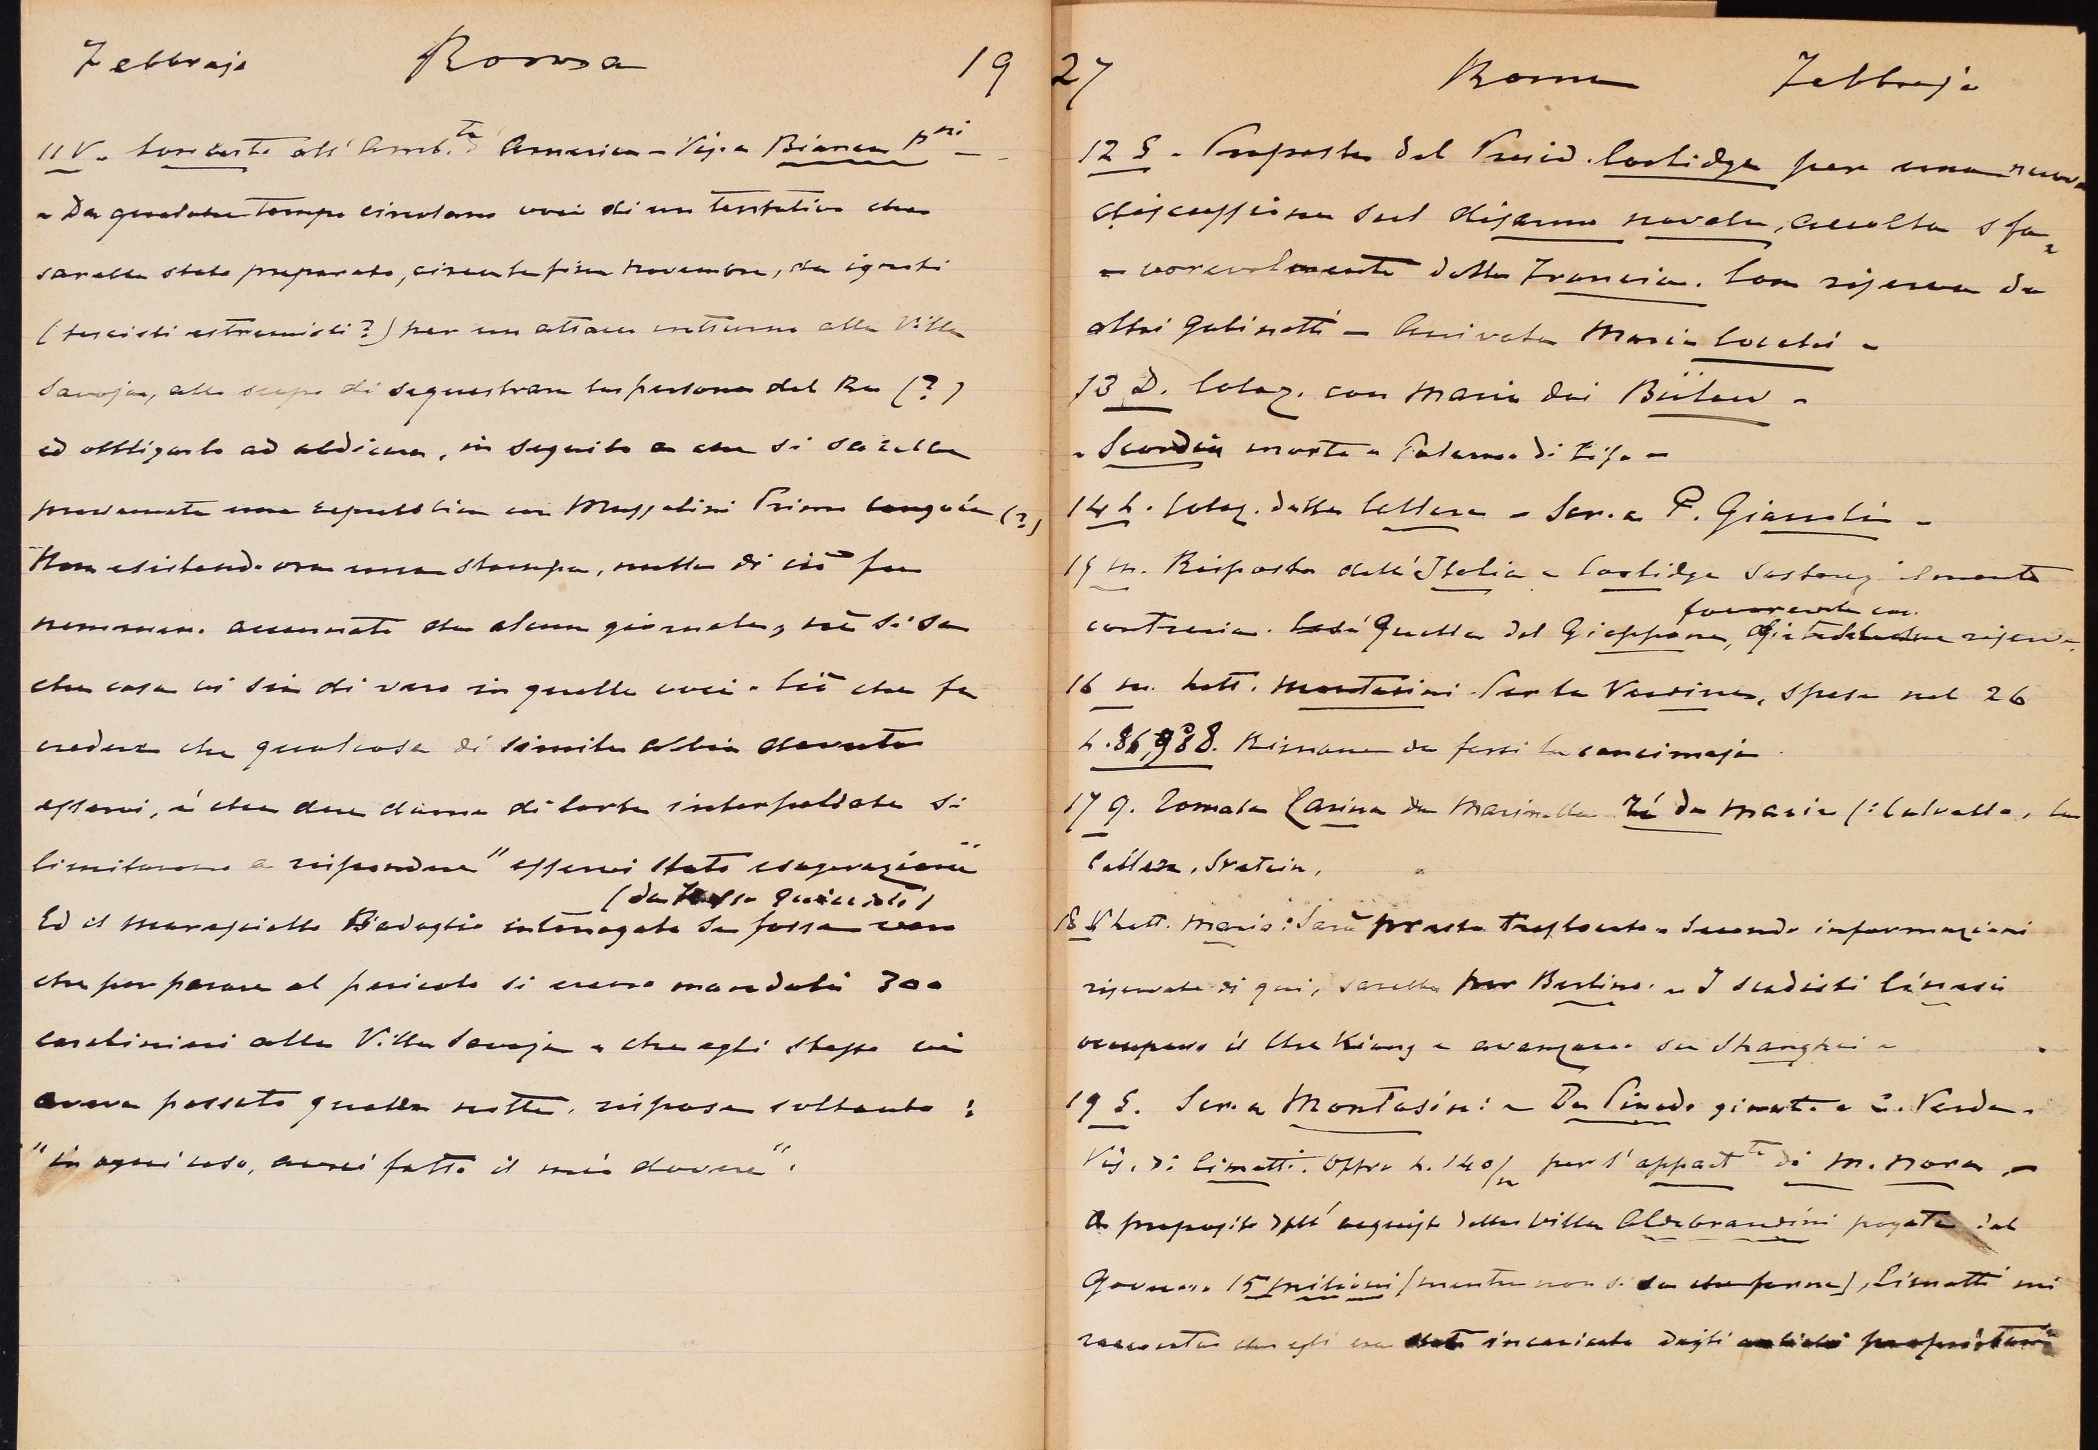 Febbrajo Roma 19
11 V. Concerto all'Amb.ta America - Vis. a Bianca
- Da qualche tempo circolano voci di un tentativo che
sarebbe stato preparato, circa la fine novembre, da ignoti
(fascisti estremisti?) per un attacco notturno alla Villa
Savoja, allo scopo di sequestrare la persona del Re (?)
ed obbligarlo ad abdicare, in seguito a che si sarebbe
proclamata una repubblica con Mussolini Primo Console (?)
Non esistendo ora una stampa, nulla di ciò fu
nemmeno accennato da alcun giornale, nè si sa
che cosa vi sia di vero in quelle voci. Ciò che fa
credere che qualcosa di simile abbia dovuto
esservi, è che due dame di Corte interpellate si
limitarono a rispondere "esservi stata esagerazione"
(da
Ed il maresciallo Badoglio interrogato se fosse vero
che per parare al pericolo si erano mandati 300
carabinieri alla Villa Savoja e che egli stesso vi
aveva passato quella notte, rispose soltanto:
"in ogni caso, avrei fatto il mio dovere".
27 Roma Febbrajo
12 S. - Proposta del Presid. Coolidge per una nuova
discussione sul disarmo navale, accolta sfa-
- vorevolmente dalla Francia. Con riserva da
altri Gabinetti - Arrivata Maria
13 D. Colaz. con Maria dai Bülow -
- Scordia morto a Palermo di tifo -
14 L. Colaz. dalla - Ser. a P.
15 M. Risposta dell'Italia a Coolidge sostanzialmente
favorevole con
contraria. Così Quella del Giappone, riserve.
16 M. Lett. Montasini. Per la Verdina, spese nel 26
L. 86,988. Rimane da farsi la concimaja
17 G. Tornata da Marinella Tè da Maria (:
18 V Lett. Mario: Sarà presto traslocato - Secondo informazioni
riservate di qui, sarebbe per Berlino. - I sudisti Cinesi
occupano il Che Kiang e avanzano su Shanghai -
19 S. Ser. a Montasini - De Pinedo giunto a C. Verde.
Vis. di Offre L. 140/m per l'appart.to di M. Nora -
A proposito dell'acquisto della Villa Aldobrandini pagata dal
Governo 15 milioni (mentre non si sa che farne), mi
racconta che egli era stato incaricato dagli antichi proprietari